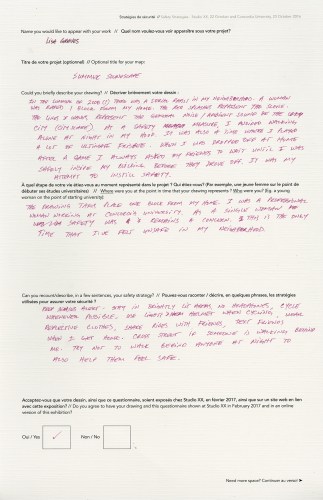 Stratégies de sécurité // Safety Strategies - Studio XX, 22 October and Concordia University, 23 October 2016
Name you would like to appear with your work // Quel nom voulez-vous voir apparaître sous votre projet?
Lisa
Titre de votre projet (optionnel) // Optional title for your map:
Summer
Could you briefly describe your drawing? // Décrivez brièvement votre dessin :
In the summer of there was a serial rapist in my neighborhood. A woman
was raped 1 block from my home. The red spiral represent the scene.
The line x work, represent the general noise / ambient sound of the
city (city map). As a safety measure, I avoided walking
alone at night in my hood. It was also a time where I played
a lot of ultimate frisbee. When I was dropped off at home
after a game I always asked my friends to wait until I was
safely inside my building before they drove off. It was my
attempt to instill safety.
À quel stade de votre vie étiez-vous au moment représenté dans le projet ? Qui étiez-vous? (Par exemple, une jeune femme sur le point de
débuter ses études universitaires) // Where were you at the point in time that your drawing represents ? Who were you? (Eg. a young
woman on the point of starting university)
The drawing takes place one block from my home. I was a professional
woman working at Concordia University. As a single woman
safety was & remains a concern. & this is the only
time that I've felt unsafe in my neighborhood.
Can you recount/describe, in a few sentences, your safety strategy? // Pouvez-vous raconter / décrire, en quelques phrases, les stratégies
utilisées pour assurer votre sécurité ?
alert. Stay in brightly lit areas, no headphones, cycle
whenever possible, use lights & wear helmet when cycling, wear
reflective clothes, share rides with friends, text friends
when I get home. Cross street if someone is walking behind
me. Try not to walk behind anyone at night to
also help them feel safe.
Acceptez-vous que votre dessin, ainsi que ce questionnaire, soient exposés chez Studio XX, en février 2017, ainsi que sur un site web en
lien avec cette exposition? // Do you agree to have your drawing and this questionnaire shown at Studio XX in February 2017 and in an online
version of this exhibition?
Oui / Yes ✓ Non / No
Need more space? Continue au verso! ➤